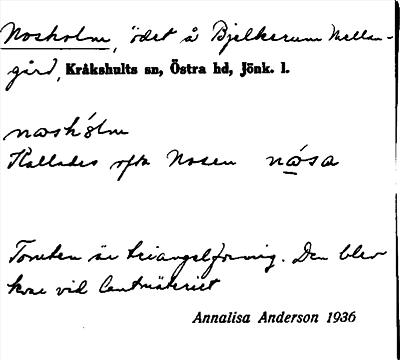 Nosholm, ödet å Bjelkerum Mellan-
gård, Kråkshults sn, Östra hd, Jönk. l.
nωshólm
Kallades ofta Nosen nωsa
Tomten är triangelformig. Den blev
kvar vid
Annalisa Anderson 1936